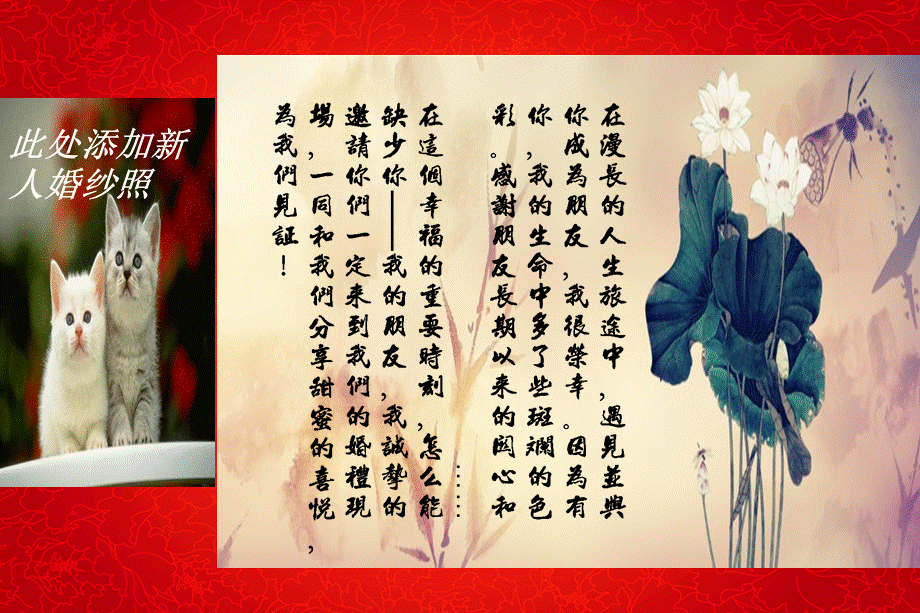 此处添加新
人婚纱照
在漫長的人生旅途中，遇見並與
你成為朋友，我很榮幸。因為有
你，我的生命中多了些斑斕的色
彩。感謝朋友長期以來的関心和
……
在這個幸福的重要時刻，怎么能
缺少你——我的朋友，我誠摯的
邀請你們一定來到我們的婚禮現
場，一同和我們分享甜蜜的喜悅，
為我們見証！